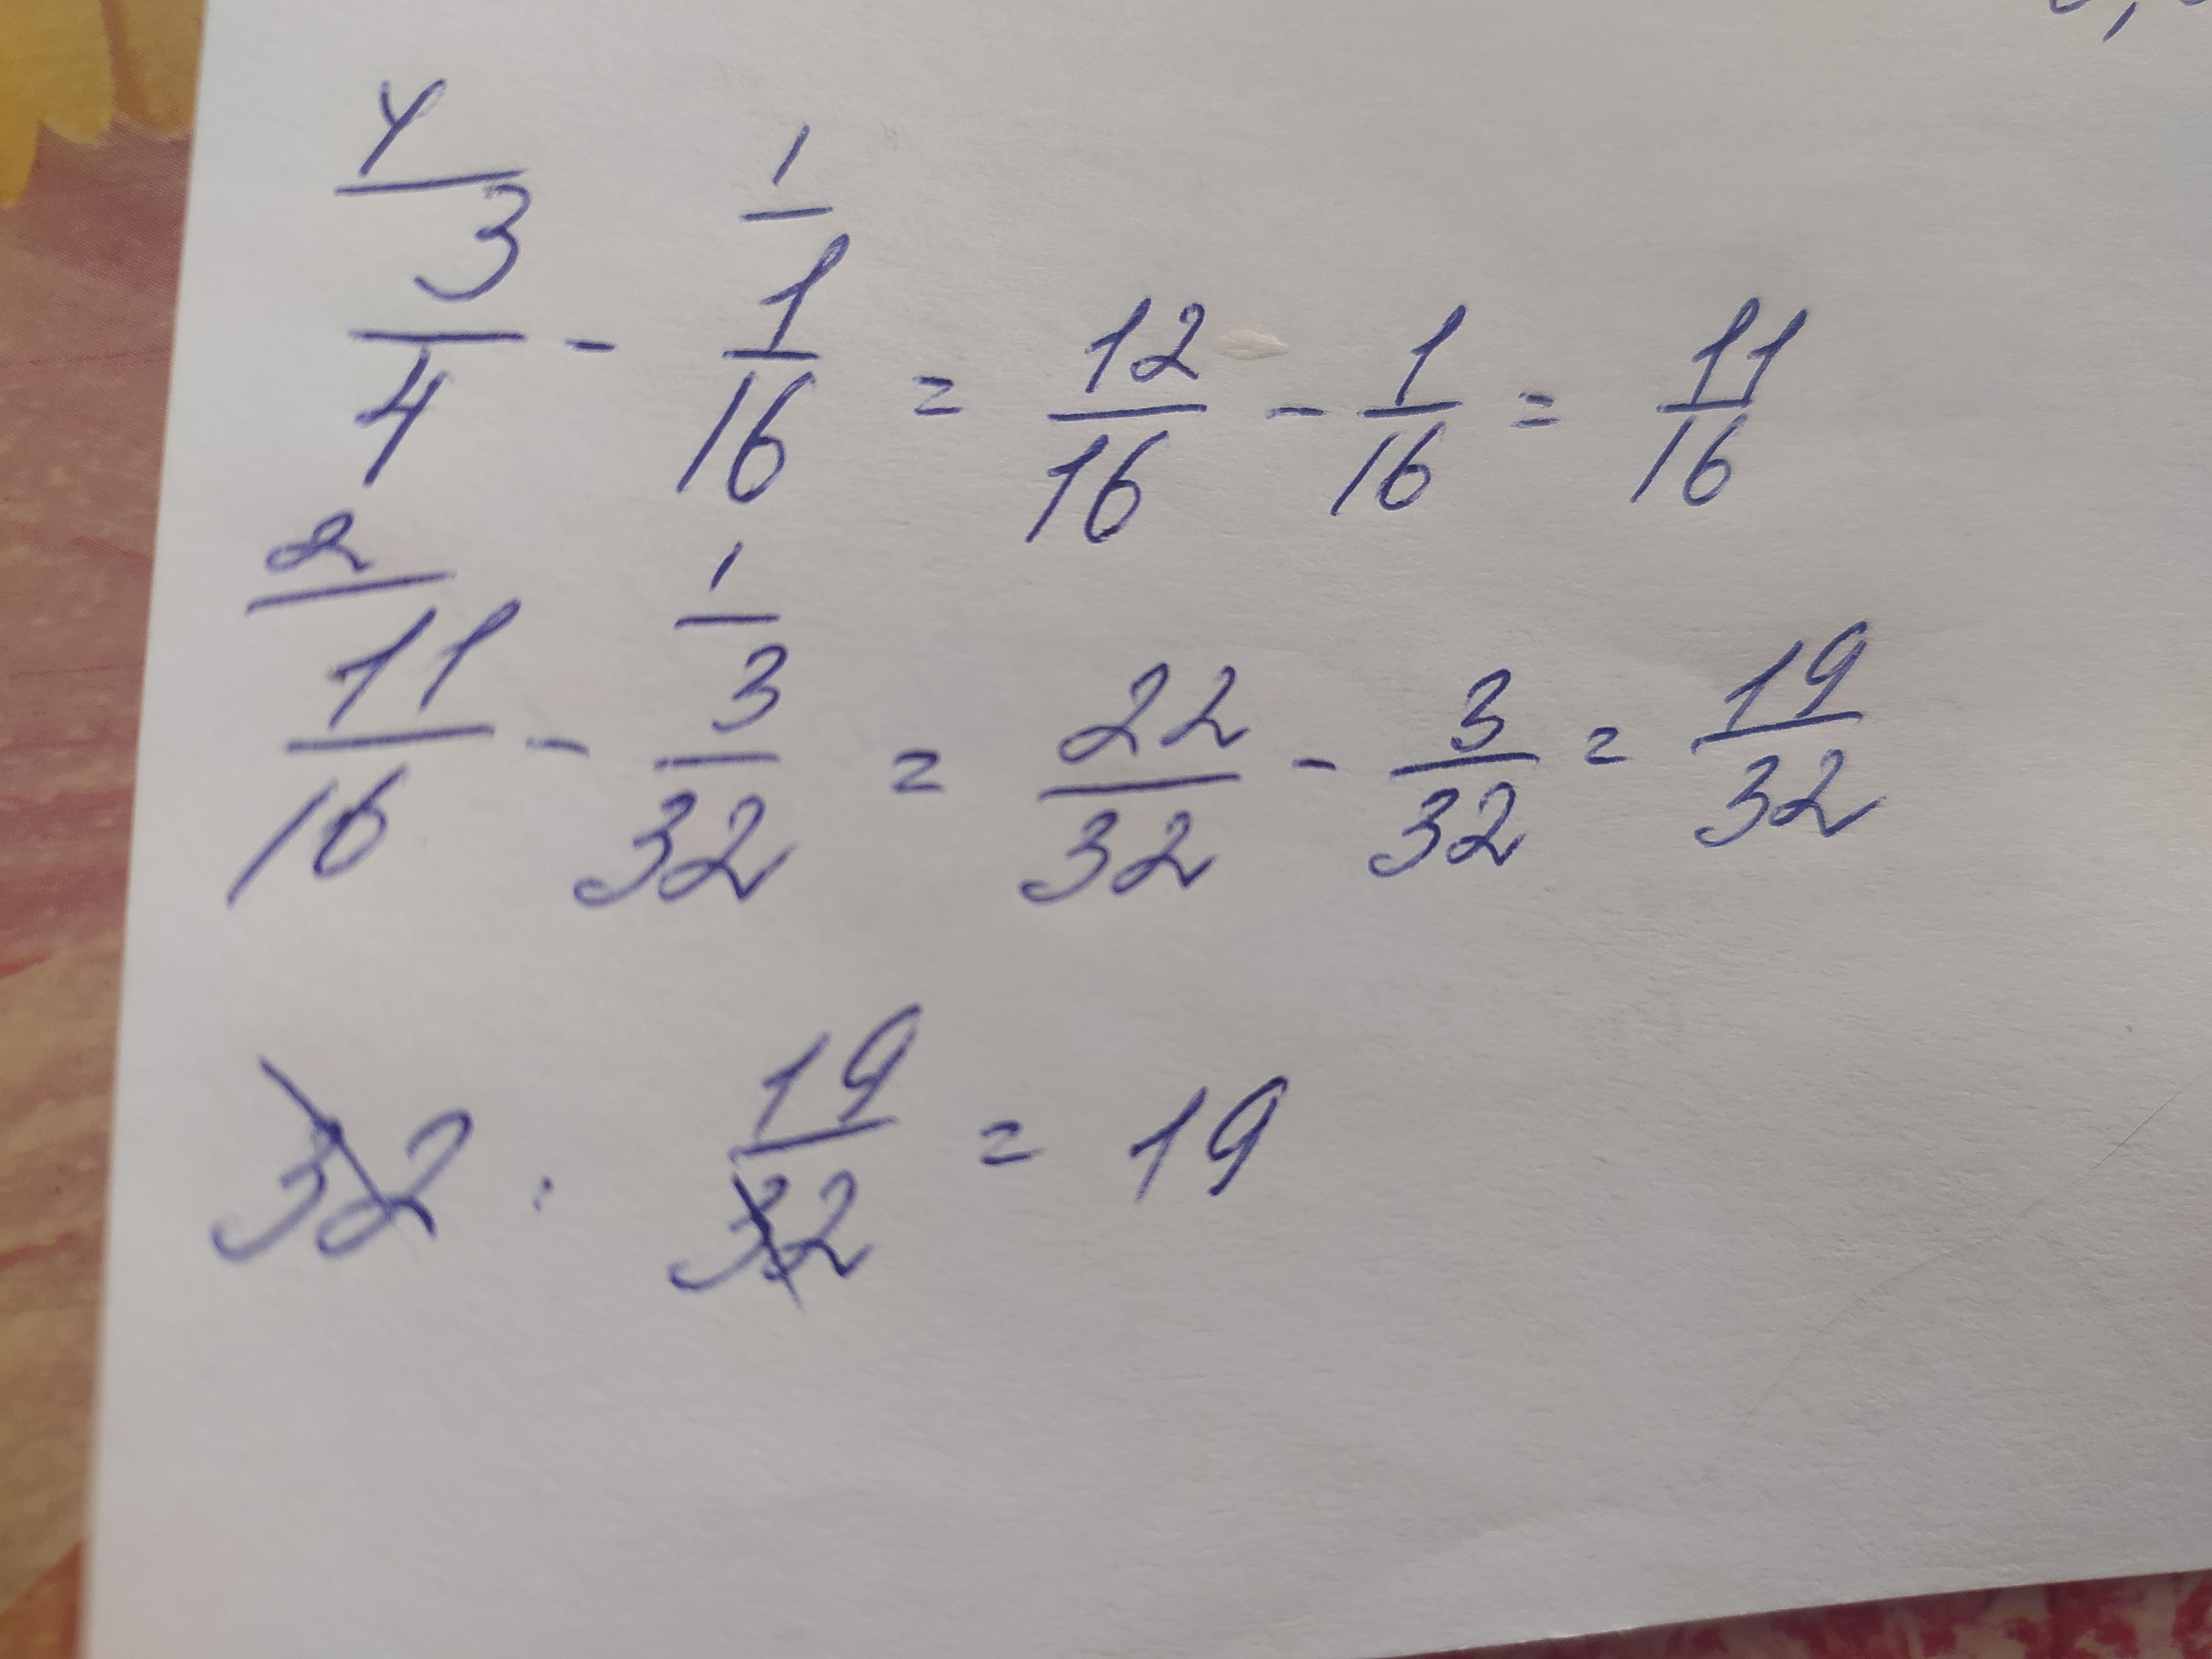 4/ 1/
3/4 - 1/16 = 12/16 - 1/16 = 11/16
2/ 1/
11/16 - 3/32 = 22/32 - 3/32 = 19/32
32 : 19/32 = 19